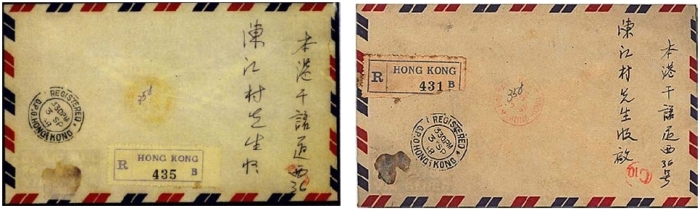 本港干諾道西36
陳江村先生收
358
REGISTERED
330PM
G.P.O. HONG KONG
HONG KONG
R 435 B
本港干諾道西36号
陳江村先生收啟
358
HONG KONG
R 431 B
REGISTERED
330PM
G.P.O. HONG KONG